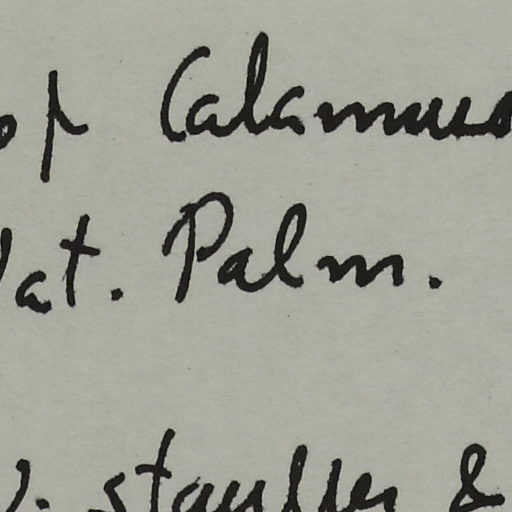 of Calamus
Nat. Palm.
. Stauffer &